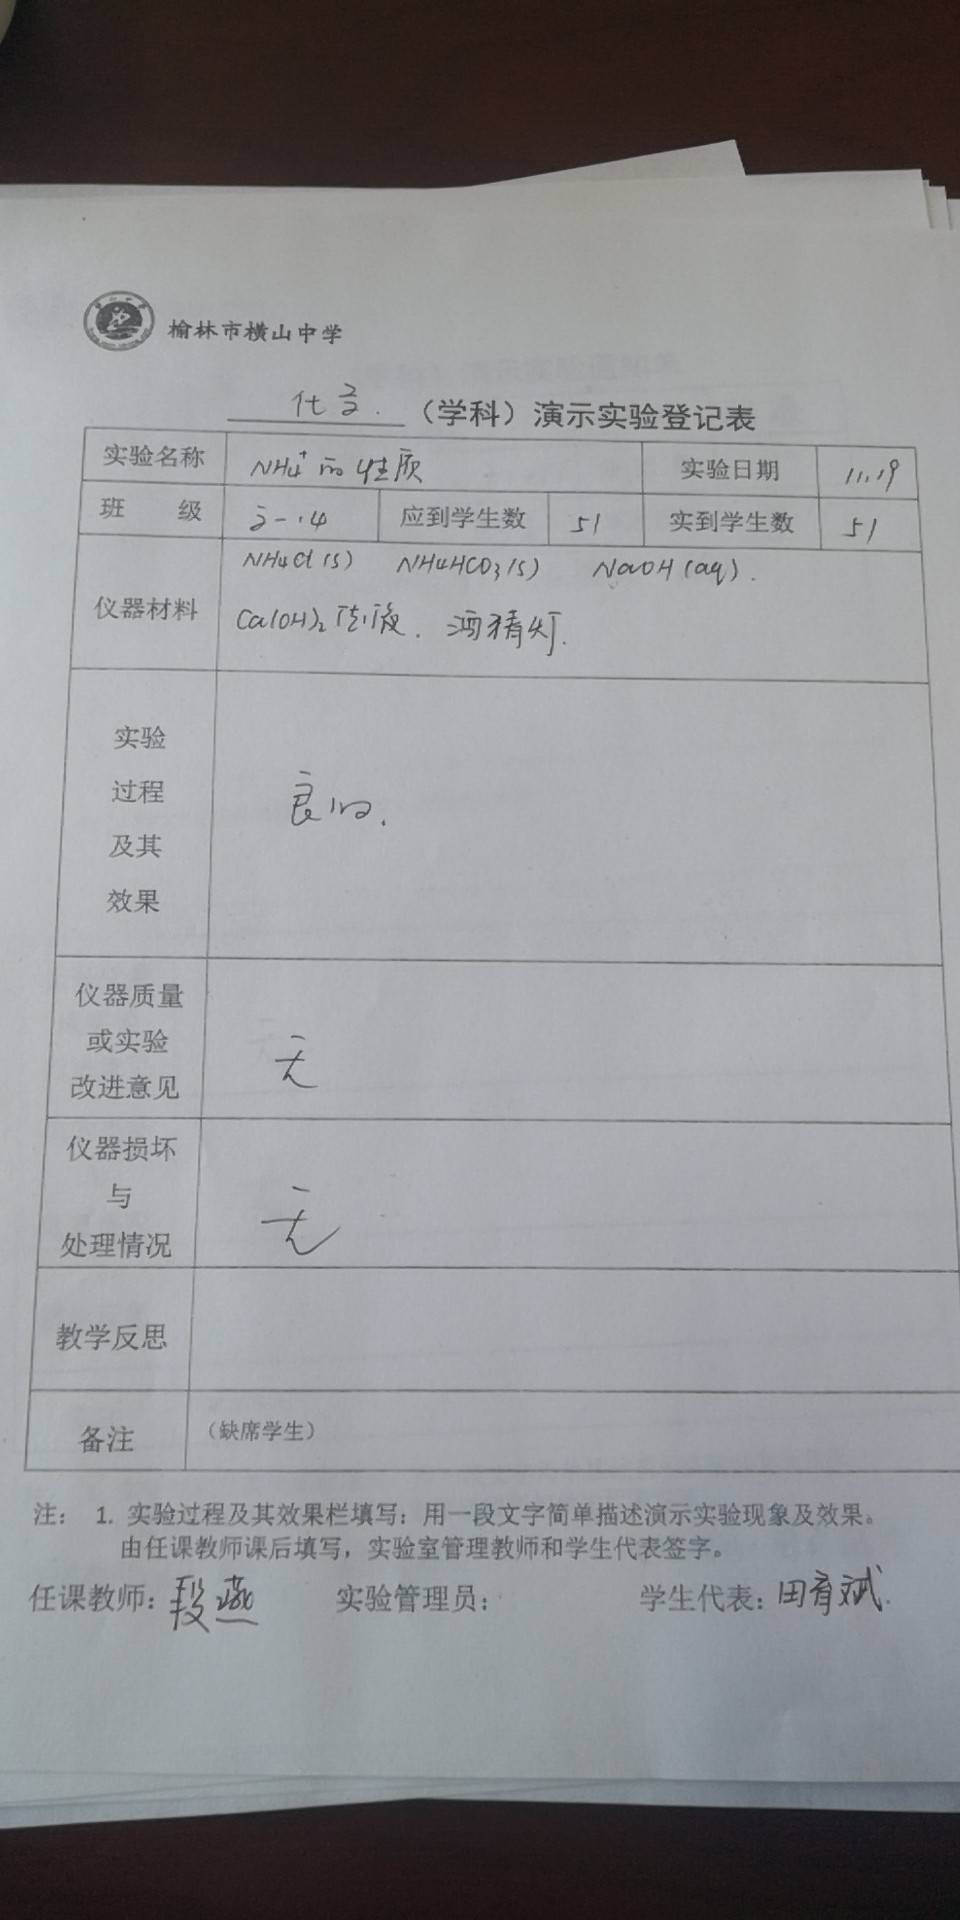 榆林市横山中学
化学.（学科）演示实验登记表
实验名称 NH₄⁺的性质 实验日期 11.19
班 级 高一.14 应到学生数 51 实到学生数 51
仪器材料 NH₄Cl(s) NH₄HCO₃(s) NaOH(aq).
Ca(OH)₂ 酒精灯.
实验
过程
及其
效果
良好.
仪器质量
或实验
改进意见
无
仪器损坏
与
处理情况
无
教学反思
备注 （缺席学生）
注： 1. 实验过程及其效果栏填写：用一段文字简单描述演示实验现象及效果。
由任课教师课后填写，实验室管理教师和学生代表签字。
任课教师：段燕 实验管理员： 学生代表：田育斌.